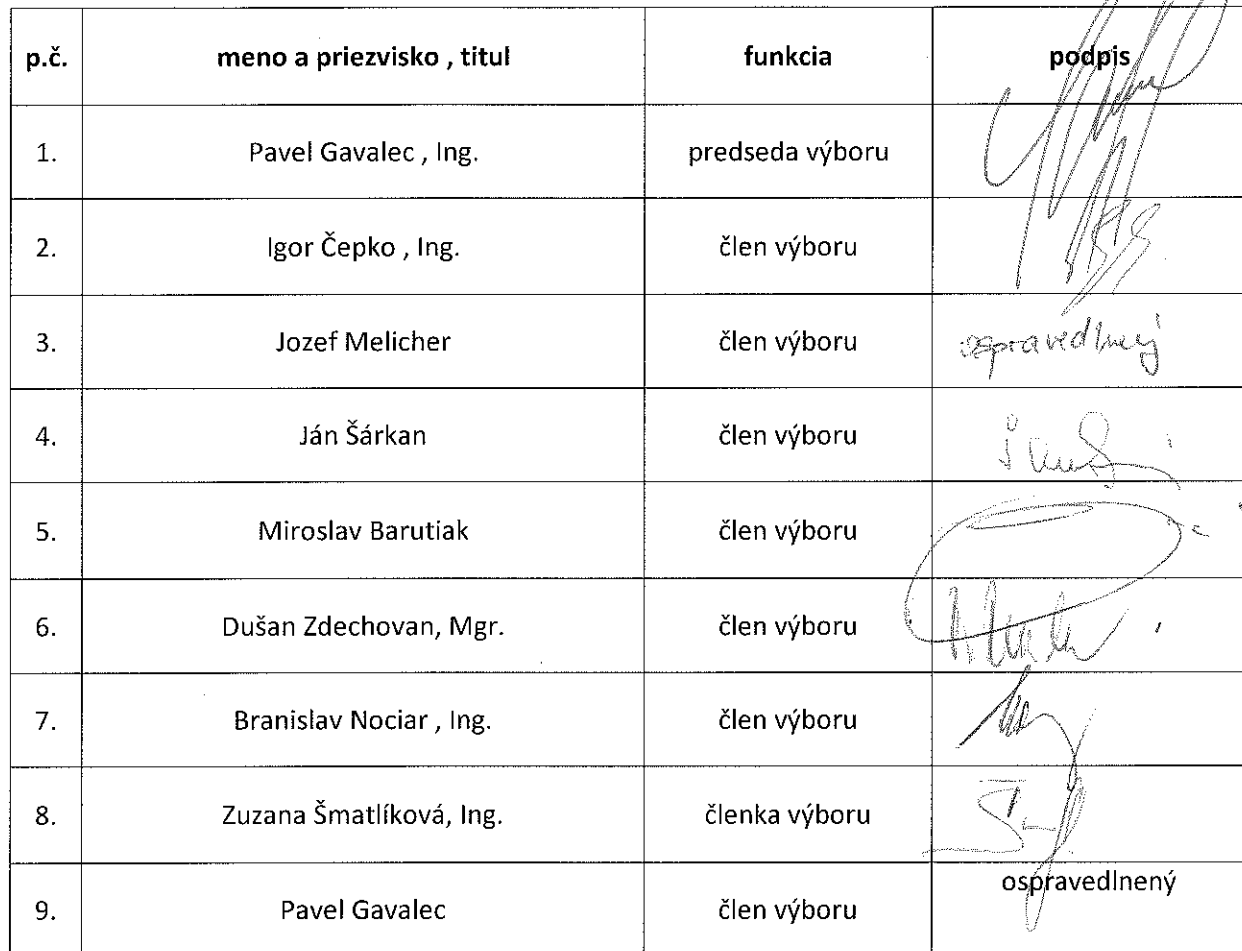 p.č. meno a priezvisko , titul funkcia podpis
1. Pavel Gavalec , Ing. predseda výboru
2. Igor Čepko , Ing. člen výboru
3. Jozef Melicher člen výboru ospravedlnený
4. Ján Šárkan člen výboru
5. Miroslav Barutiak člen výboru
6. Dušan Zdechovan, Mgr. člen výboru
7. Branislav Nociar , Ing. člen výboru
8. Zuzana Šmatlíková, Ing. členka výboru
9. Pavel Gavalec člen výboru ospravedlnený